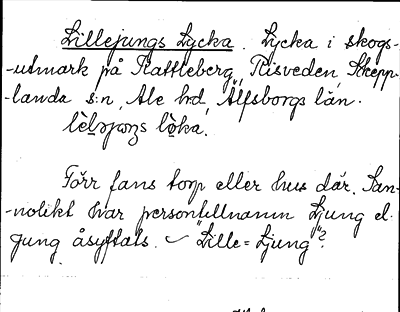 Lillejungs Lycka. Lycka i skogs-
-utmark på Rattleberg, "Risveden", Skepp-
-landa s:n, Ale hd, Älfsborgs län.
Förr fans torp eller hus där. San-
-nolikt hvar persontillnamn Ljung el.
Jung åsyftats. "Lille=Ljung"?